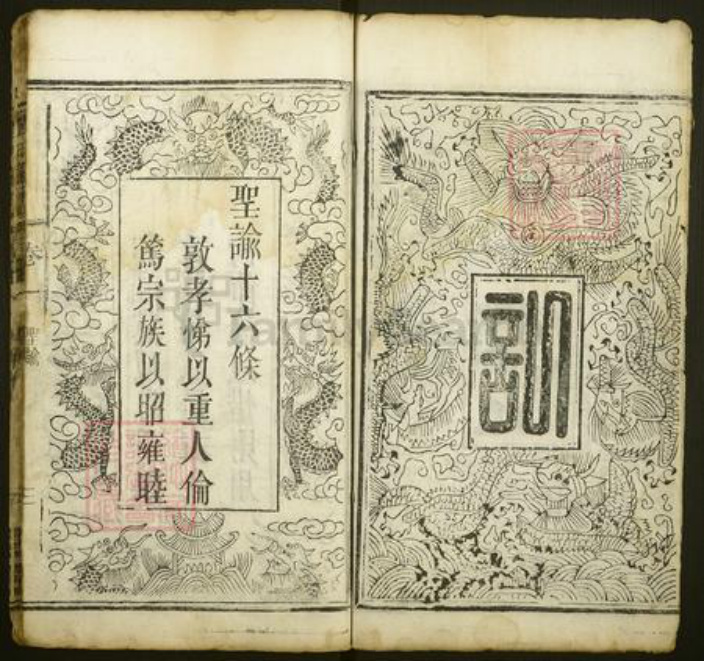 訓
聖諭十六條
敦孝悌以重人倫
篤宗族以昭雍睦
卷一
聖諭